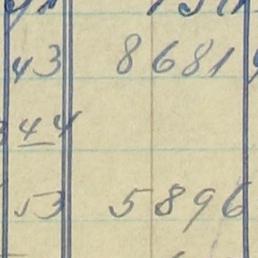 43 8681
44
53 5896